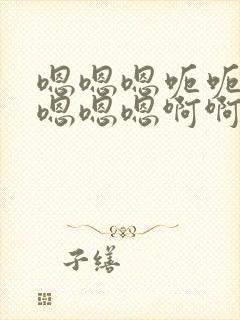 嗯嗯嗯呃呃
嗯嗯嗯啊啊
子缮